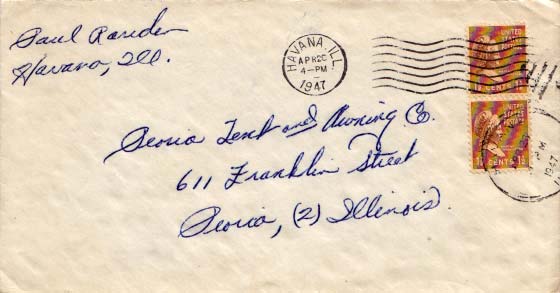 Paul
Havana, Ill.
HAVANA, ILL.
APR 20
4-PM
1947
UNITED STATES POSTAGE
1½ CENTS 1½
UNITED STATES POSTAGE
1½ CENTS 1½
P.M.
1947
Peoria Tent and Awning Co.
611 Franklin Street
Peoria, (2) Illinois.